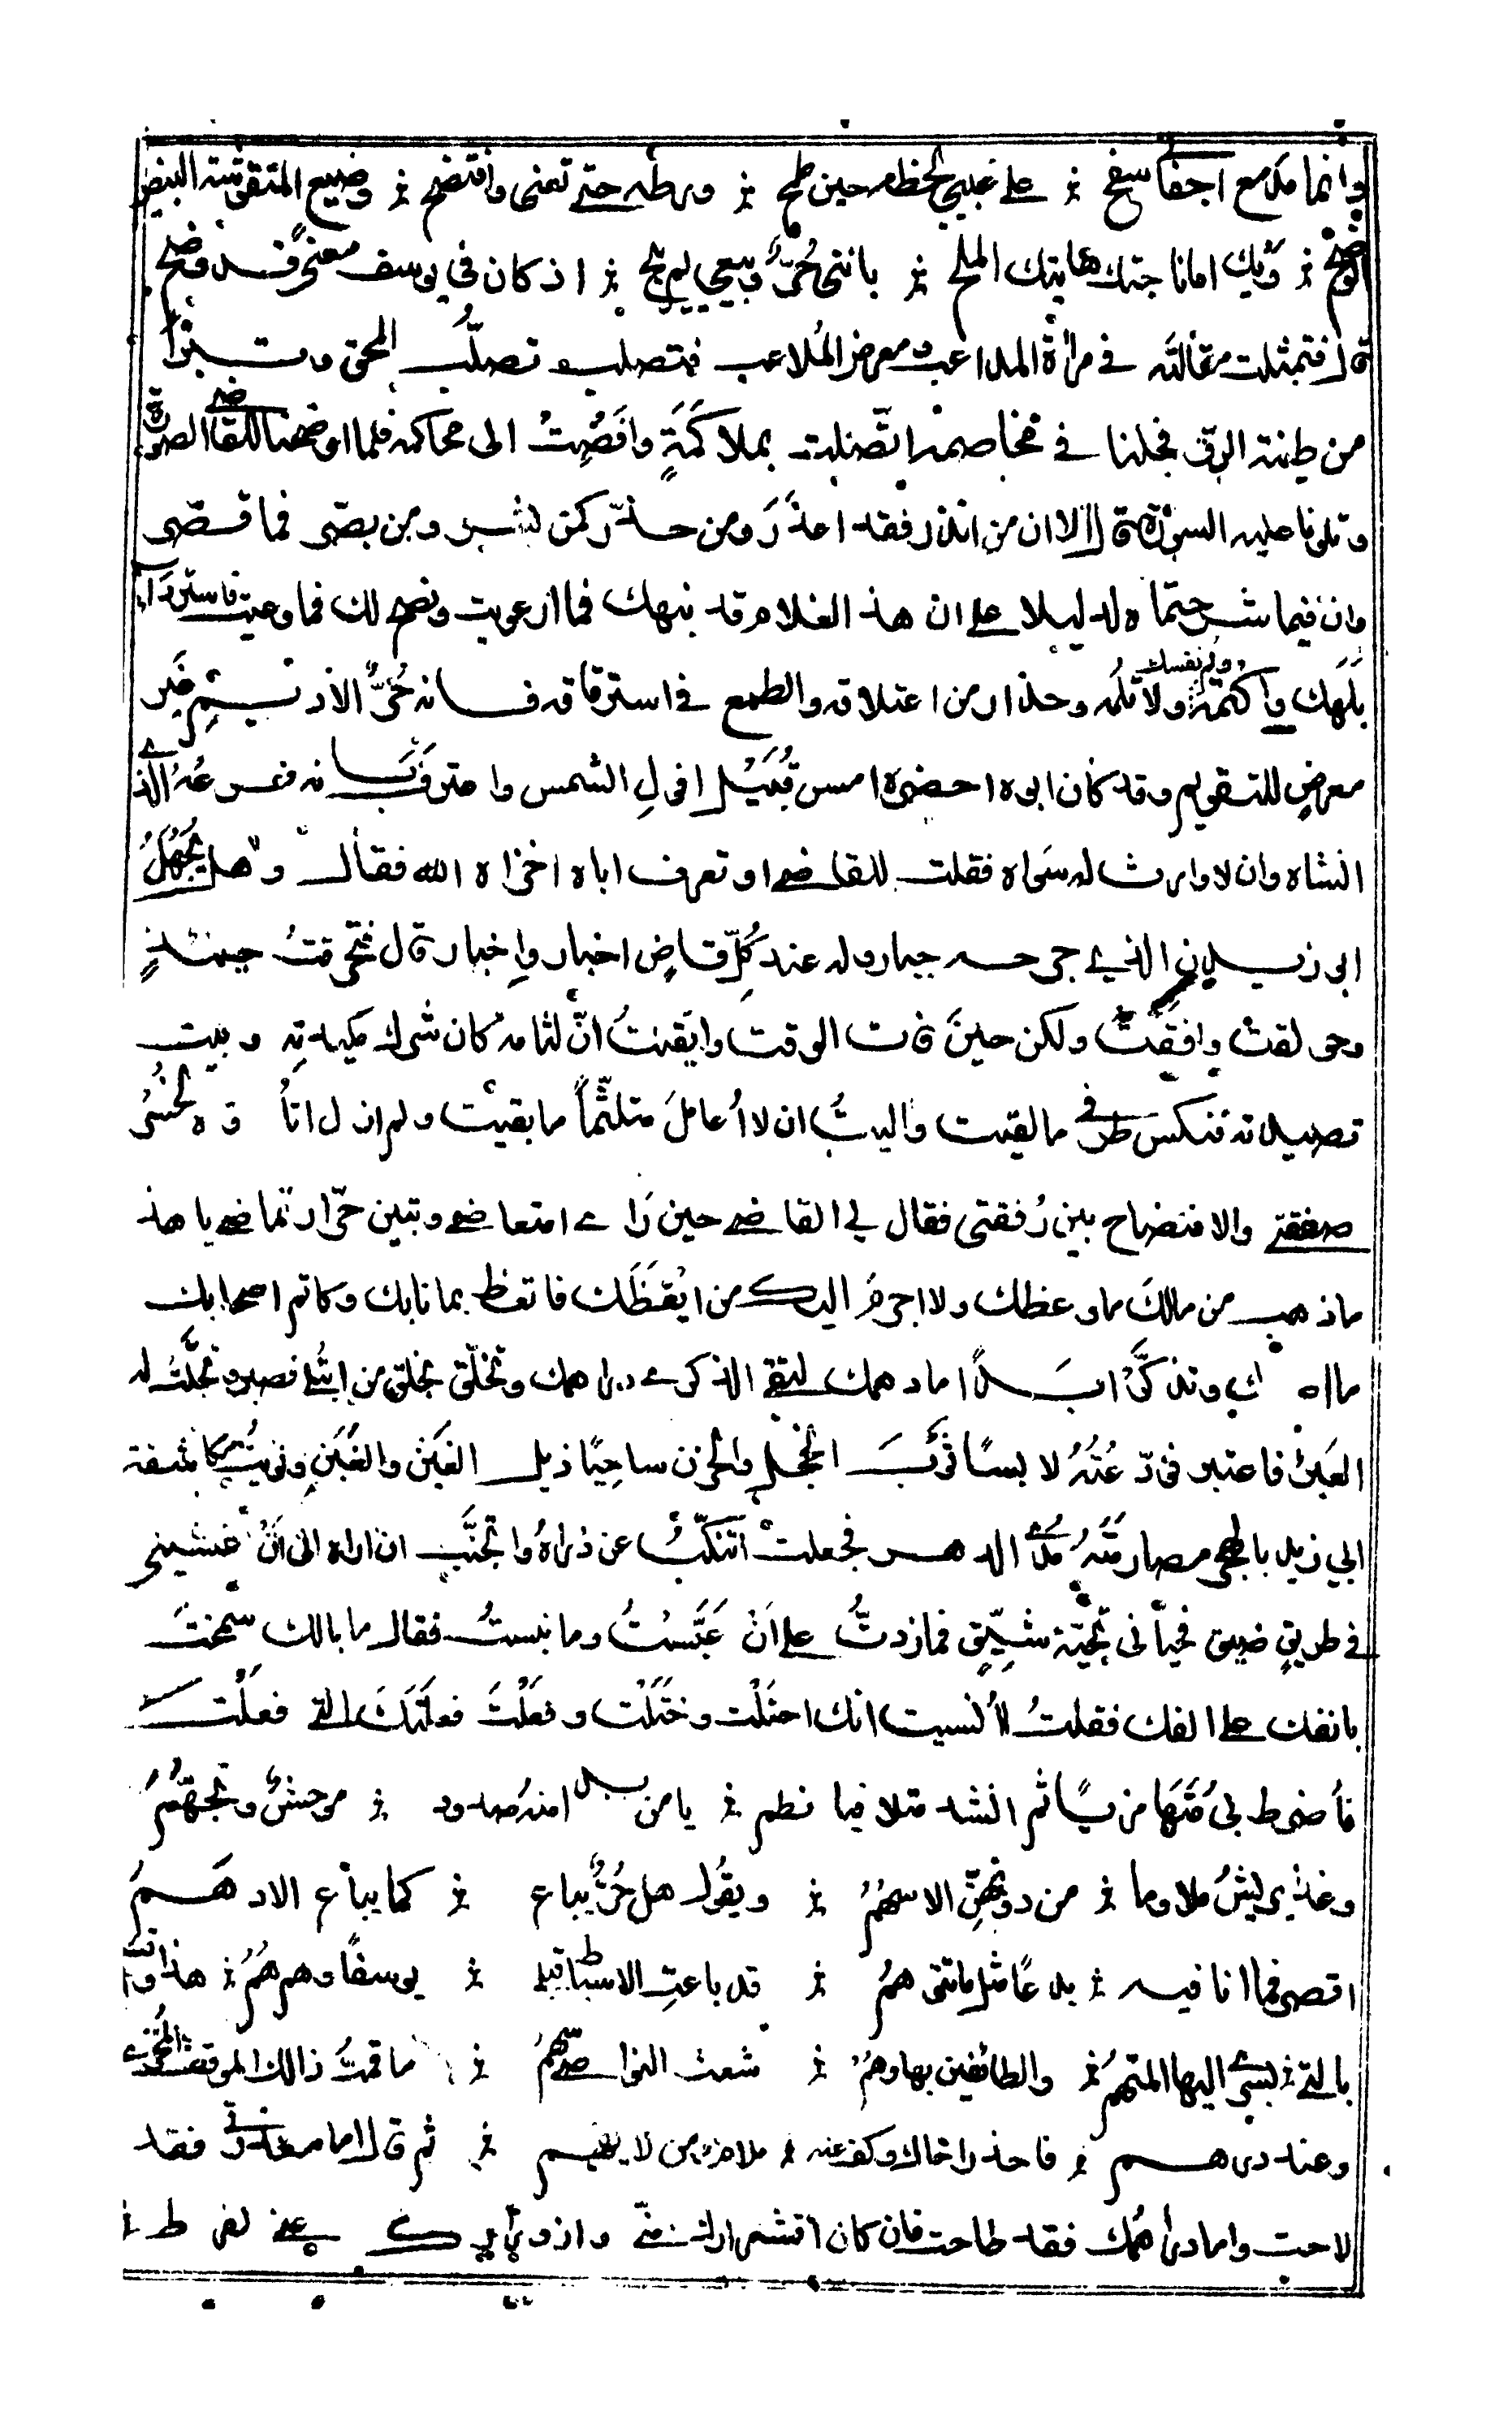 وانما مدمع اجفانى سفح ⁂ على غبي لحظه حين طمح ⁂ ورطه حتى تعنى وافتضح ⁂ وضيع المنقوشة البيض
الوضح ⁂ ويك اما ناجتك هاتيك الملح ⁂ بانني حر وبيعي لم يبح ⁂ اذ كان في يوسف معنى قد وضح
قال فتمثلت مقالته في مرأة المداعب ومعرض الملاعب فتصلب تصلب المحق وتبرا
من طينة الرق فجلنا في مخاصمة اتصلت بملاكمة وافضت الى محاكمة فلما اوضحنا للقاضى الصورة
وتلونا عليه السورة قال الا ان من انذر فقد اعذر ومن حذر كمن بشر ومن بصر فما قصر
وان فيما شرحتماه لدليلا على ان هذا الغلام قد نبهك فما ارعويت ونصح لك فما وعيت فاستر داء
بلهك واكتمه ولم نفسك ولا تلمه وحذار من اعتلاقه والطمع في استرقاقه فانه حر الاديم غير
معرض للتقويم وقد كان ابوه احضره امس قبيل افول الشمس واعترف بانه فرعه الذي
انشاه وان لا وارث له سواه فقلت للقاضي او تعرف اباه اخزاه الله فقال وهل يجهل
ابو زيد الذي جرحه جبار وله عند كل قاض اخبار واخبار قال فتحرقت حينئذ
وحولقت وافقت ولكن حين فات الوقت وايقنت ان لثامه كان شرك مكيدته وبيت
قصيدته فنكس طرفي ما لقيت واليت ان لا اعامل متلثما ما بقيت ولم ازل اتأوه لخسر
صفقتى والافتضاح بين رفقتى فقال لي القاضي حين راى امتعاضي وتبين حر ارتماضي يا هذا
ما ذهب من مالك ما وعظك ولا اجرم اليك من ايقظك فاتعظ بما نابك وكاتم اصحابك
ما اصابك وتذكر ابدا ما دهمك لتقى الذكرى دراهمك وتخلق بخلق من ابتلى فصبر وتجلت له
العبر فاعتبر فودعته لابسا ثوب الخجل والحزن ساحبا ذيل الغبن والغبن ونويت مكاشفة
ابي زيد بالهجر ومصارمته مدى الدهر فجعلت اتنكب عن ذراه واتجنب ان اراه الى ان غشيني
في طريق ضيق فحياني تحية شيق فما زدت على ان عبست وما نبست فقال ما بالك شمخت
بانفك على الفك فقلت أنسيت انك احتلت وختلت وفعلت فعلتك التي فعلت
فأضرط بى متهازيا ثم انشد متلافيا نظم ⁂ يا من بدا منه صدود ⁂ موحش وتجهم
وغدا يريش ملاوما ⁂ من دونهن الاسهم ⁂ ويقول هل حر يباع ⁂ كما يباع الادهم
اقصر فما انا فيه ⁂ بدعا مثل ما تتوهم ⁂ قد باعت الاسباط قبلى ⁂ يوسفا وهم هم ⁂ هذا واقسم
بالتى ⁂ يسرى اليها المتهم ⁂ والطائفين بها وهم ⁂ شعث النواصى سهم ⁂ ما قمت ذالك الموقف المخزى
وعندى درهم ⁂ فاعذر اخاك وكف عنه ⁂ ملام من لا يفهم ⁂ ثم قال اما معذرتى فقد
لاحت واما دراهمك فقد طاحت فان كان اقشعرارك منى وازورارك عنى لفرط